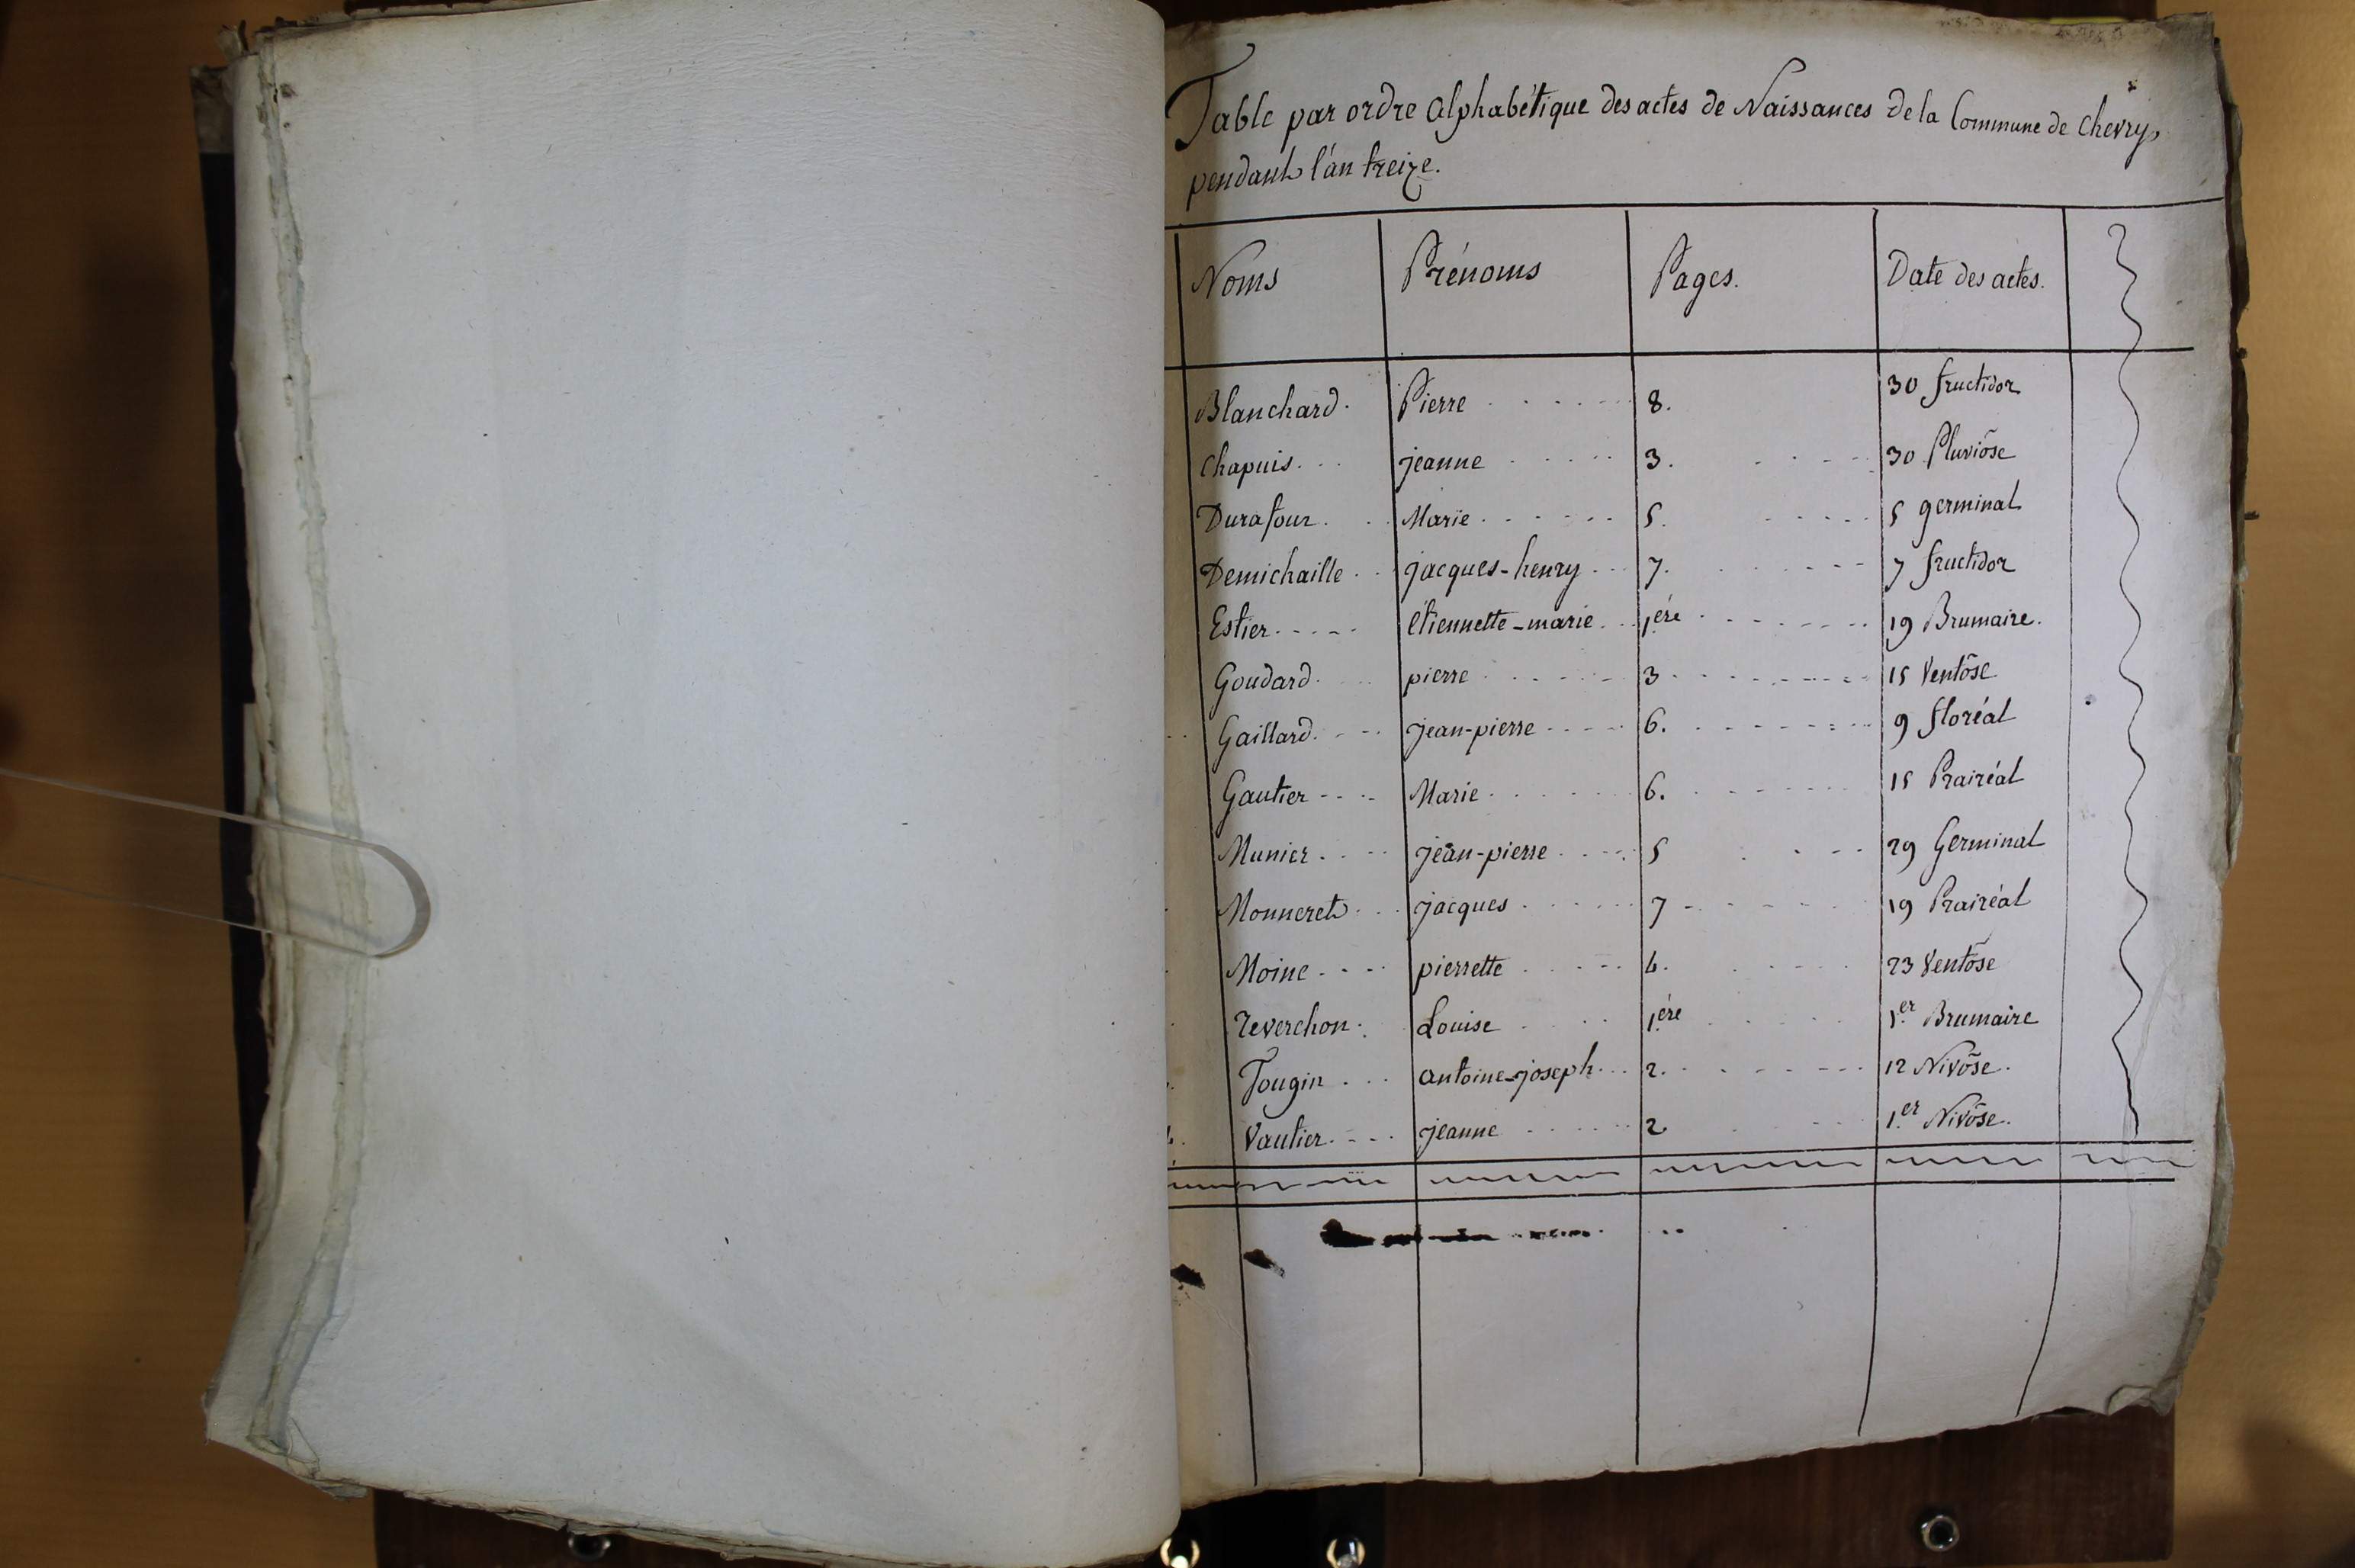 Table par ordre alphabétique des actes de Naissances de la Commune de chevry,
pendant l'an treize.
Noms Prénoms Pages. Date des actes.
Blanchard. Pierre 8. 30 fructidor
Chapuis. jeanne 3. 30 Pluviôse
Durafour. Marie 5. 5 germinal
Demichaille jacques-henry 7. 7 fructidor
Estier étiennette-marie 1ère 19 Brumaire.
Goudard pierre 3 15 Ventôse
Gaillard jean-pierre 6. 9 floréal
Gautier Marie 6. 15 Prairéal
Munier jean-pierre 5 29 Germinal
Monneret jacques 7 19 Prairéal
Moine pierrette 4. 23 Ventôse
reverchon Louise 1ère 1er Brumaire
Tougin antoine-joseph 2. 12 Nivôse.
Vautier jeanne 2 1er Nivôse.